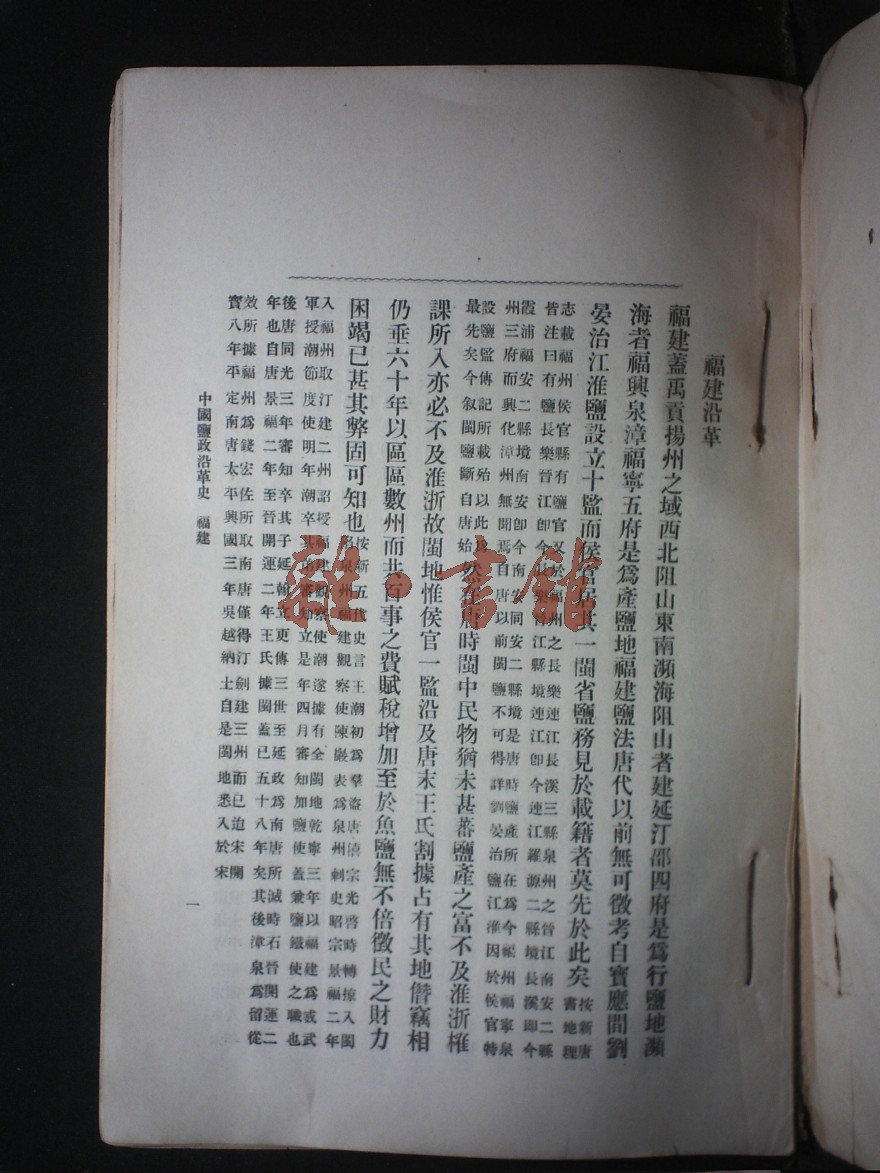 福建沿革
福建蓋禹貢揚州之域西北阻山東南瀕海阻山者建延汀邵四府是爲行鹽地瀕
海者福興泉漳福寧五府是爲產鹽地福建鹽法唐代以前無可徵考自寶應間劉
晏治江淮鹽設立十監而侯官居其一閩省鹽務見於載籍者莫先於此矣
按新唐
書地理
志載福州侯官縣有鹽官又於福州之長樂連江長溪三縣泉州之晉江南安二縣
皆注曰有鹽長樂晉江卽今長樂晉江縣境連江卽今連江羅源二縣境長溪卽今
霞浦福安二縣境南安卽今南安同安二縣境是唐時鹽產所在爲今福州福寧泉
州三府而興化漳州無聞焉自唐以前閩鹽不可得詳劉晏治鹽江淮因於侯官特
設鹽監傳記所載殆以此爲
最先矣今叙閩鹽斷自唐始
然在唐時閩中民物猶未甚蕃鹽產之富不及淮浙榷
課所入亦必不及淮浙故閩地惟侯官一監沿及唐末王氏割據占有其地僭竊相
仍垂六十年以區區數州而共百事之費賦稅增加至於魚鹽無不倍徵民之財力
困竭已甚其弊固可知也
按新五代史言王潮初爲羣盜唐僖宗光啓時轉掠入閩
泉州福建觀察使陳巖表爲泉州刺史昭宗景福二年
入福州取汀建二州詔授福建觀察使潮遂據有全閩地乾寧三年以福建爲威武
軍授潮節度使明年潮卒其弟審知立是年四月審知加鹽使蓋兼鹽鐵使之職也
後唐同光三年審知卒其子延翰立更傳三世至延政爲南唐所滅時石晉開運二
年也自唐景福二年至晉開運二年王氏據閩蓋已五十八年矣其後漳泉爲留從
效所據福州爲錢宏佐所取南唐僅得汀劍建三州而已迨宋開
寶八年平定南唐太平興國三年吳越納土自是閩地悉入於宋
中國鹽政沿革史 福建
一
雜·書館